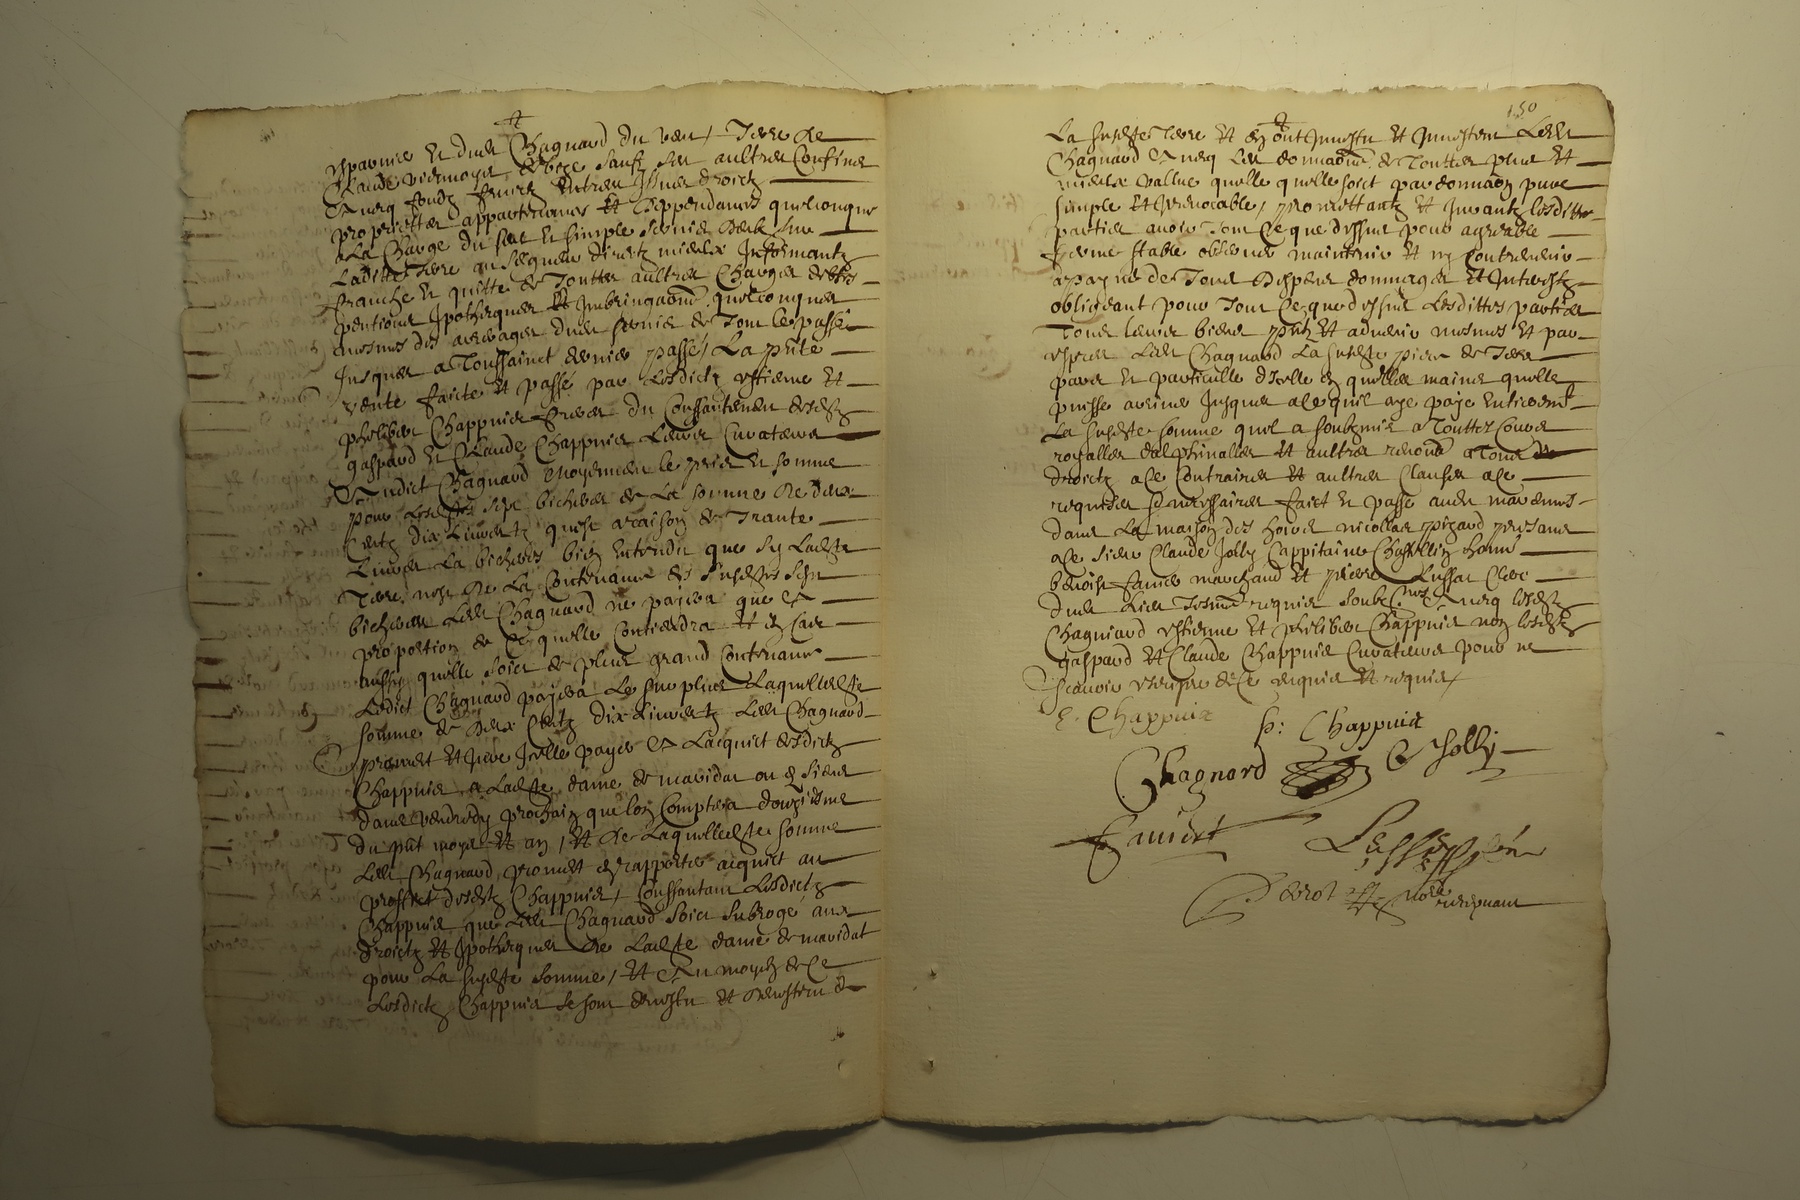 dud Chagnard du vent, Terre de
Claude sauf ses aultres Confins
Avecq fondz fruictz Entrees Issues droictz
proprietes appartenances Et deppendances quelconques
a La Charge du et simple servis deub sur
Laditte Terre au seigneur direct mieulx Informant
franche et quitte de Touttes aultres Charges debtes
pentions Ipotheques Et quelconques
mesmes des arrerages dud servis de Tout le passé
Jusques a Toussainct dernier passé, La pnte
vente faicte Et passé par Lesdictz Estienne Et
philibert Chappuis freres du Consantement desdtz
gaspard et Claude Chappuis Leurs Curateurs
Audict Chagnard moyennant le pris et somme
pour bicheres de La somme de deux
Centz dix Livres a raison de Trante
Livres La bicheree bien Entendu que sy Ladte
Terre nest de La Contenance des susdtes sept
bicheres Led Chagnard ne payera que A
proportion de Ce quelle Contiendra Et en Cas
aussy quelle soict de plus grand Contenance
Ledict Chagnard payera Le surplus Laquelle dte
somme de deux Centz dix Livres Led Chagnard
promet Et Jure Icelle payer A Lacquict desdictz
Chappuis a Ladte dame de maridat ou es siens
dans vendredy prochain que lon Comptera douziesme
du pnt moys Et an, Et de Laquelle dte somme
Led Chagnard promet en rapporter acquict au
proffict desdtz Chappuis, Consantant Lesdictz
Chappuis que Led Chagnard soict subrogé aux
droictz Et Ipotheques de Ladte dame de maridat
pour La susdte somme, Et Au moyen de Ce
Lesdictz Chappuis se sont devestu Et devestent de
150
La susdte Terre Et en ont Investu Et Investent Led
Chagnard Avecq Les donnaons de Touttes plus Et
mieulx vallue quelle quelle soict par donnaon pure
simple Et Irrevocable, promettantz Et Jurantz lesdittes
parties avoir Tout Ce que dessus pour agreable
ferme stable observer maintenir Et ny Contrevenir
a payne de Tous despens dommages Et Interestz
obligeant pour Tout Ce que dessus Lesdittes parties
Tous leurs biens pntz Et advenir mesmes Et par
Expres Led Chagnard La susdte piece de Terre
pars et particulle dIcelle en quelles mains quelle
puisse arriver Jusques a Ce quil aye payé Entierement
La susdte somme quil a soubzmis a Touttes Cours
royalles dalphinalles Et aultres renonce a Tous
droictz a Ce Contraires Et aultres Clauses a Ce
requises Et necessaires faict et passé aud
dans La maison des hoirs nicollas pizard presans
a Ce sieur Claude Jolly Cappitaine Chastellin honn
benoist favier marchand Et pierre Lussat Clerc
dud Lieu Tesmoings requis soubznes Avecq lesdtz
Chagniard Estienne Et philibert Chappuis non lesdtz
gaspard Et Claude Chappuis Curateurs pour ne
scavoir Escripre de Ce Enquis Et requis,
E. Chappuis
p: Chappuis
Chagnard
C Jolly
Favier